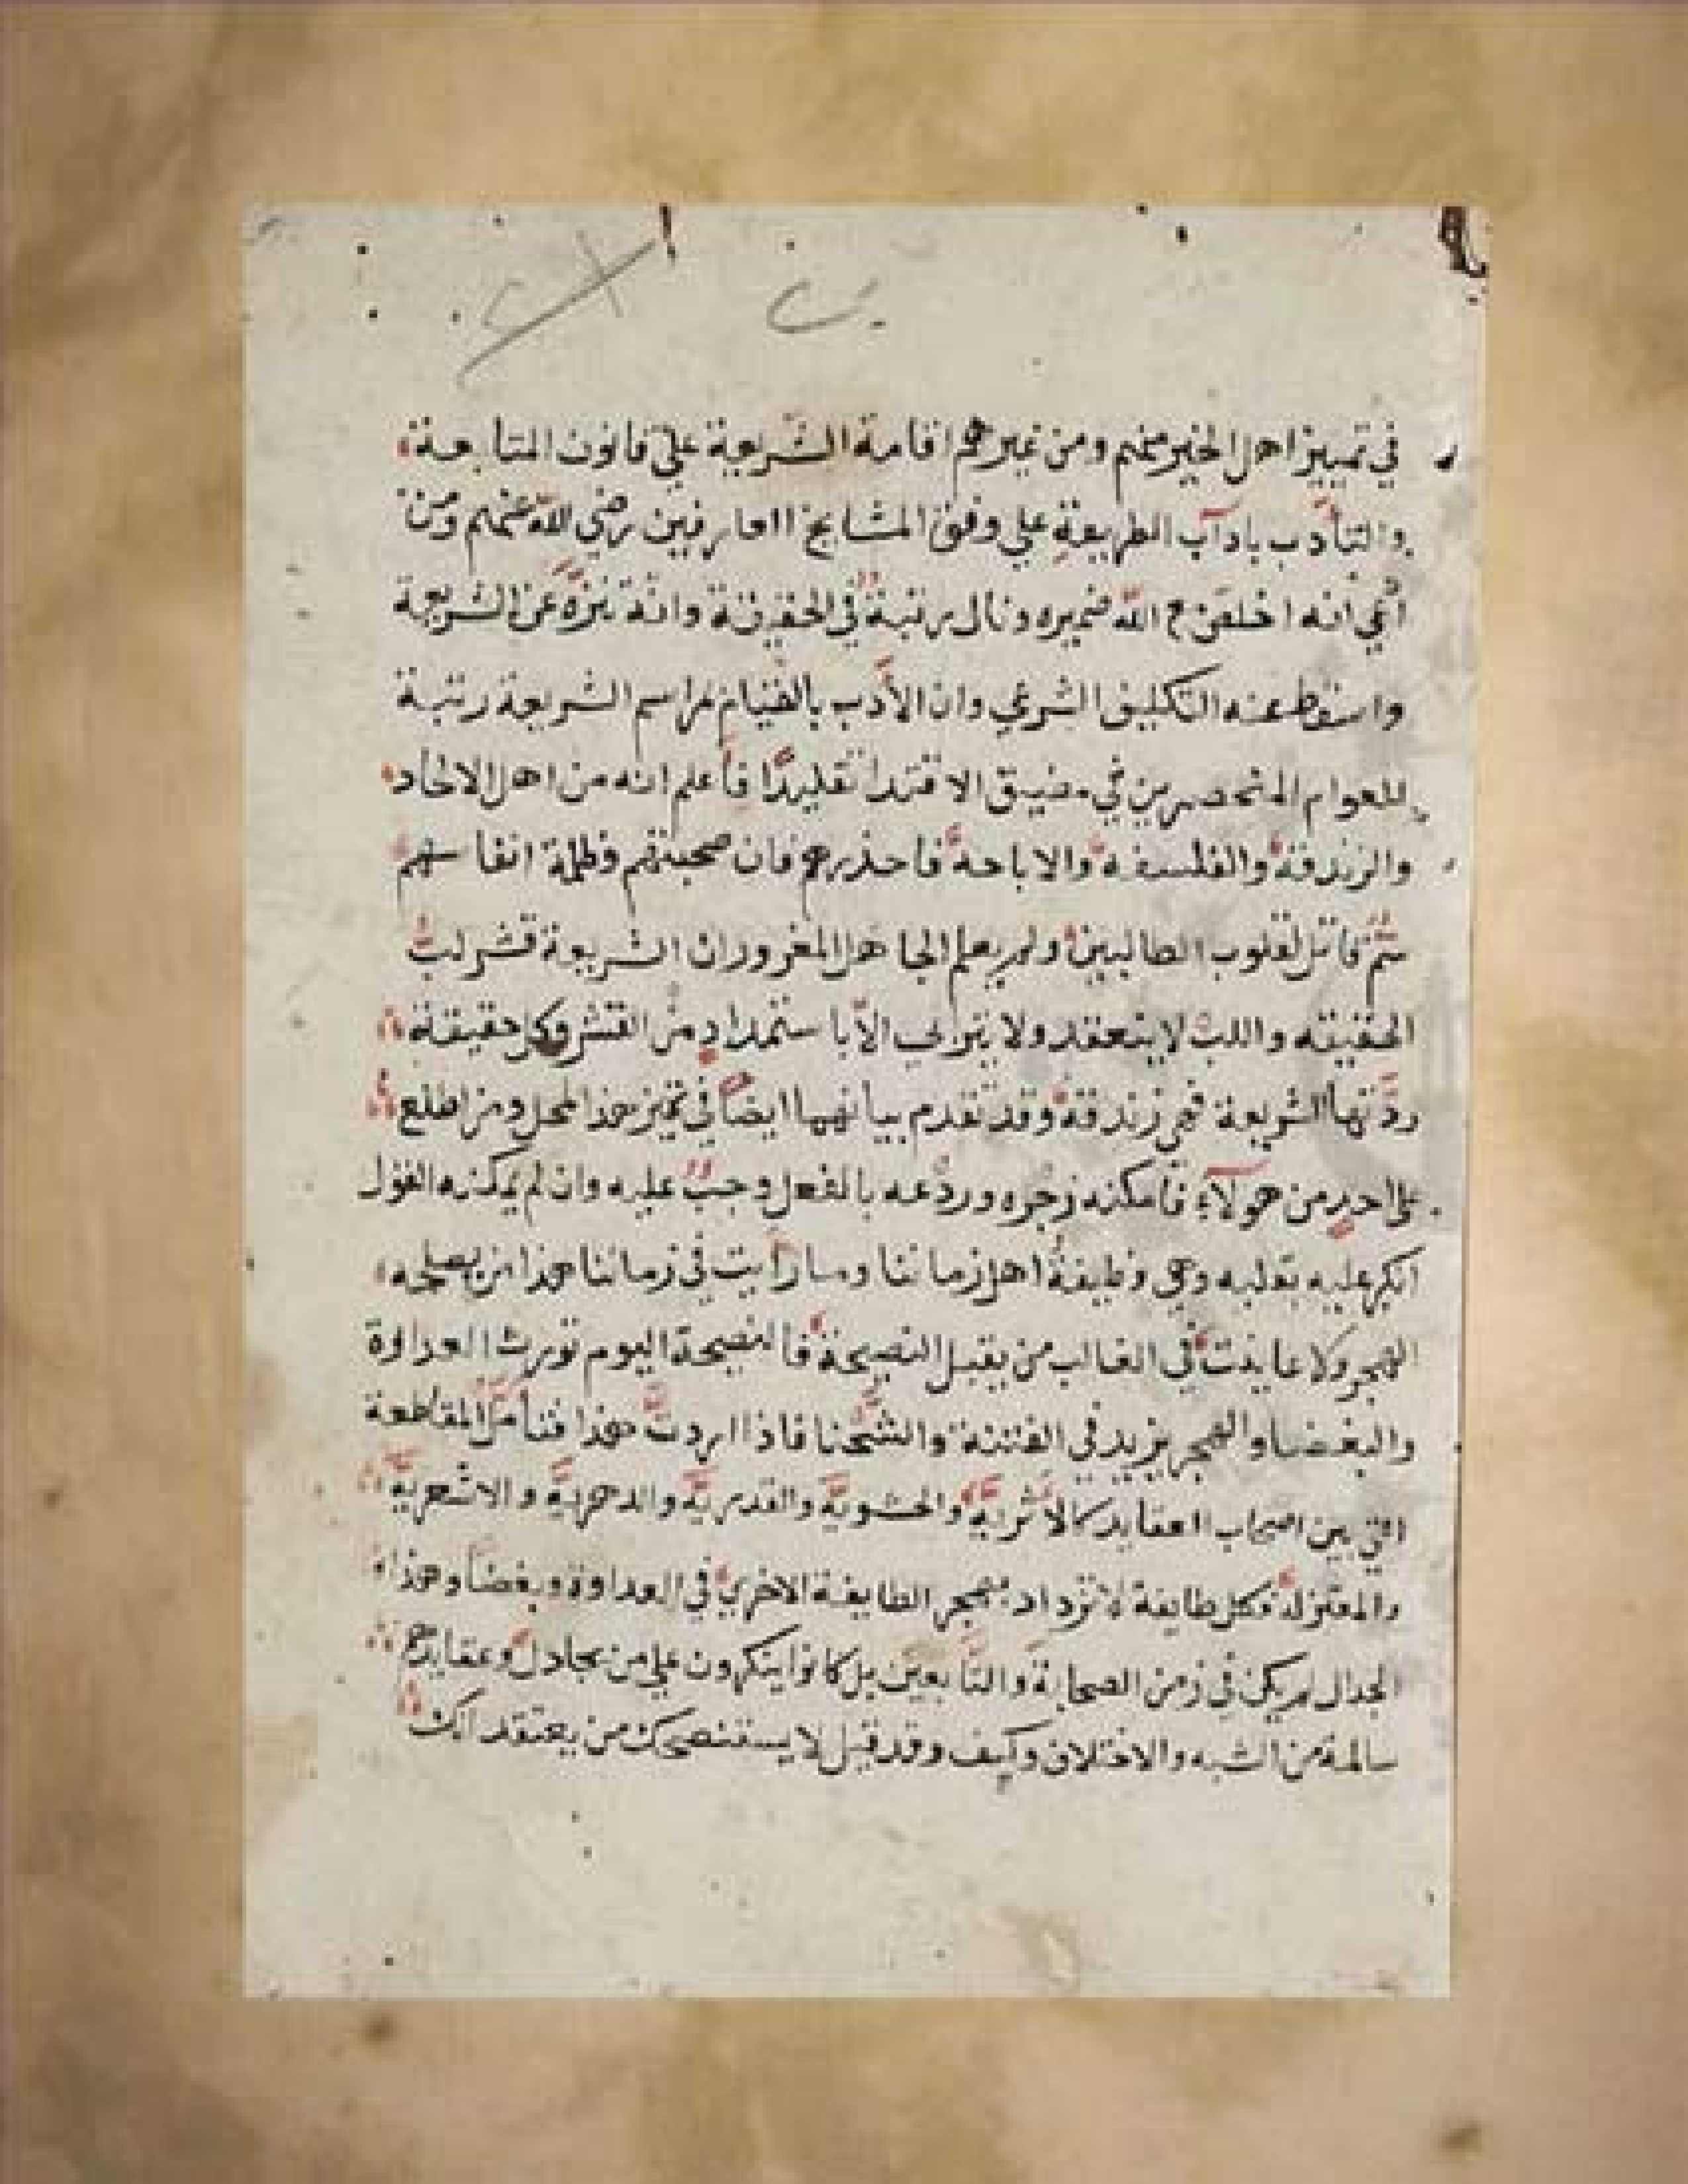 في تمييز اهل الخير منهم ومن غيرهم اقامة الشريعة علي قانون المتابعة
والتأدب بادآب الطريقة علي وفق المشايخ العارفين رضي الله عنهم ومن
ادعي انه اخلص مع الله ضميره ونال رتبة في الحقيقة وانه نزه عن الشريعة
واسقط عنه التكليف الشرعي وان الأدب بالقيام لمراسم الشريعة رتبة
للعوام المنحصرين في مضيق الاقتدا تقليدًا فأعلم انه من اهل الالحاد
والزندقة والفلسفه والاباحة فأحذرهم فان صحبتهم وظلمة انفاسهم
سُمّ قاتل لقلوب الطالبين ولم يعلم الجاهل المغرور ان الشريعة قشر لبّ
الحقيقه واللبّ لا ينعقد ولا يتربي الاّ باستمداد من القشر وكل حقيقة
ردّتها الشريعة فهي زندقة وقد تقدم بيانهما ايضًا في تميز هذا المحل ومن اطلع
على احد من هولآء فأمكنه زجره وردعه بالفعل وجب عليه وان لم يمكنه القول
انكر عليه بقلبه وهي وظيفة اهل زماننا وما رأيت في زماننا هذا من يصلحه
الهجر ولا عاينت في الغالب من يقبل النصيحة فالنصيحة اليوم تورث العداوة
والبغضا والهجر يزيد في الفتنة والشحنا فاذا اردت هذا فتأمل المقاطعة
التي بين اصحاب العقايد كالاثرية والحشوية والقدرية والدهرية والاشعرية
والمعتزلة فكل طايفة لا تزداد بهجر الطايفة الاخري في العداوة وبغضًا وهذا
الجدال لم يكن في زمن الصحابة والتابعين بل كانوا ينكرون علي من يجادل وعقايدهم
سالمة من الشبه والاختلاف وكيف وقد قيل لا يستنصحك من يعتقد انك